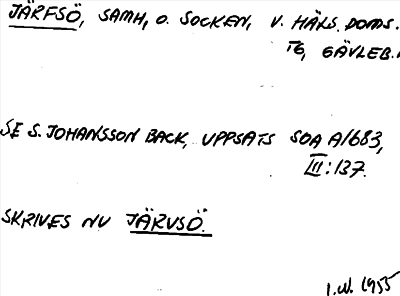 JÄRFSÖ, SAMH, O. SOCKEN, V. HÄLS. DOMS.
TG, GÄVLEB.
SE S. JOHANSSON BACK, UPPSATS SOA A1683,
III:137.
SKRIVES NU JÄRVSÖ.
I.W. 1955